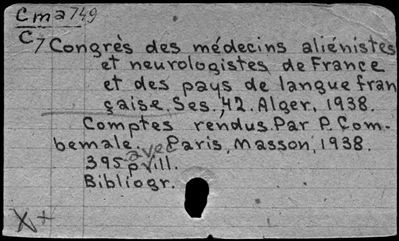 Cma749
C7 Congrès des médecins aliénistes
et neurologistes de France
et des pays de langue fran
çaise. Ses. 42. Alger, 1938.
Comptes rendus. Par P. Com-
bemale. Paris, Masson, 1938.
395 p. avec ill.
Bibliogr.
X+